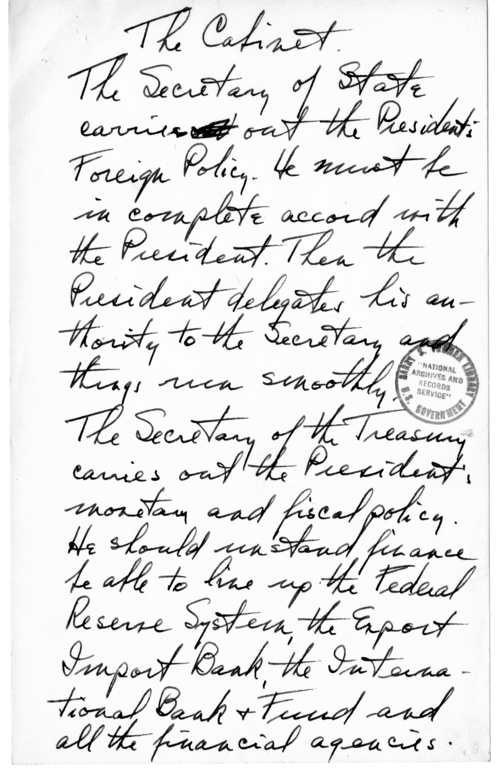 The Cabinet.
The Secretary of State
carries out the President's
Foreign Policy. He must be
in complete accord with
the President. Then the
President delegates his au-
thority to the Secretary and
things run smoothly.
HARRY S. TRUMAN LIBRARY
"NATIONAL
ARCHIVES AND
RECORDS
SERVICE"
U.S. GOVERNMENT
The Secretary of the Treasury
carries out the President's
monetary and fiscal policy.
He should unstand finance
be able to line up the Federal
Reserve System, the Export
Import Bank, the Interna-
tional Bank & Fund and
all the financial agencies.